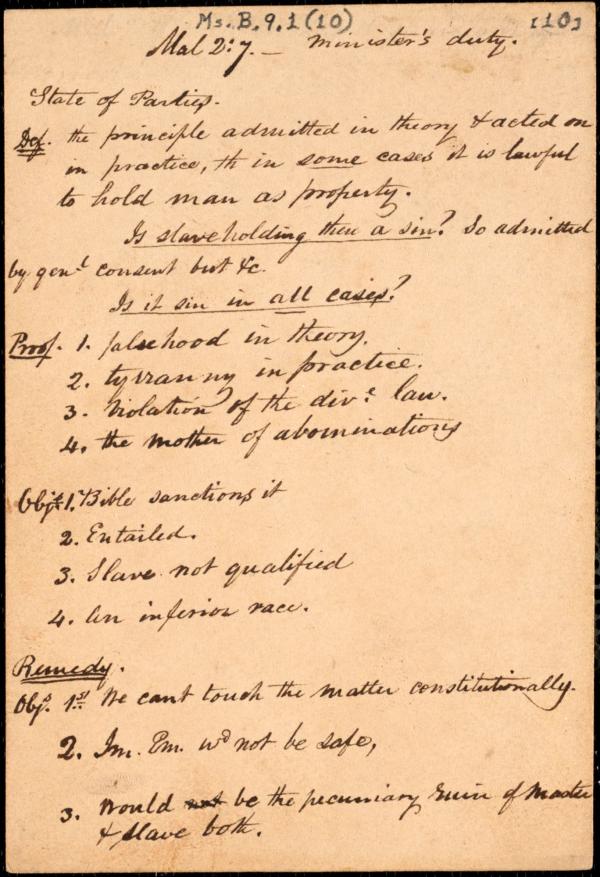 Ms. B. 9. 1 (10)
[10]
Mal 2:7. — Minister's duty.
State of Parties.
Def. the principle admitted in theory & acted on
in practice, th in some cases it is lawful
to hold man as property.
Is slaveholding then a sin? So admitted
by genl consent but &c.
Is it sin in all cases?
Proof. 1. falsehood in theory.
2. tyranny in practice.
3. Violation of the dive law.
4. the mother of abominations
Objs 1. Bible sanctions it
2. Entailed.
3. Slave not qualified
4. An inferior race.
Remedy.
Objs. 1st We cant touch the matter constitutionally.
2. Im. Em. wd not be safe,
3. Would not be the pecuniary ruin of Master
& slave both.